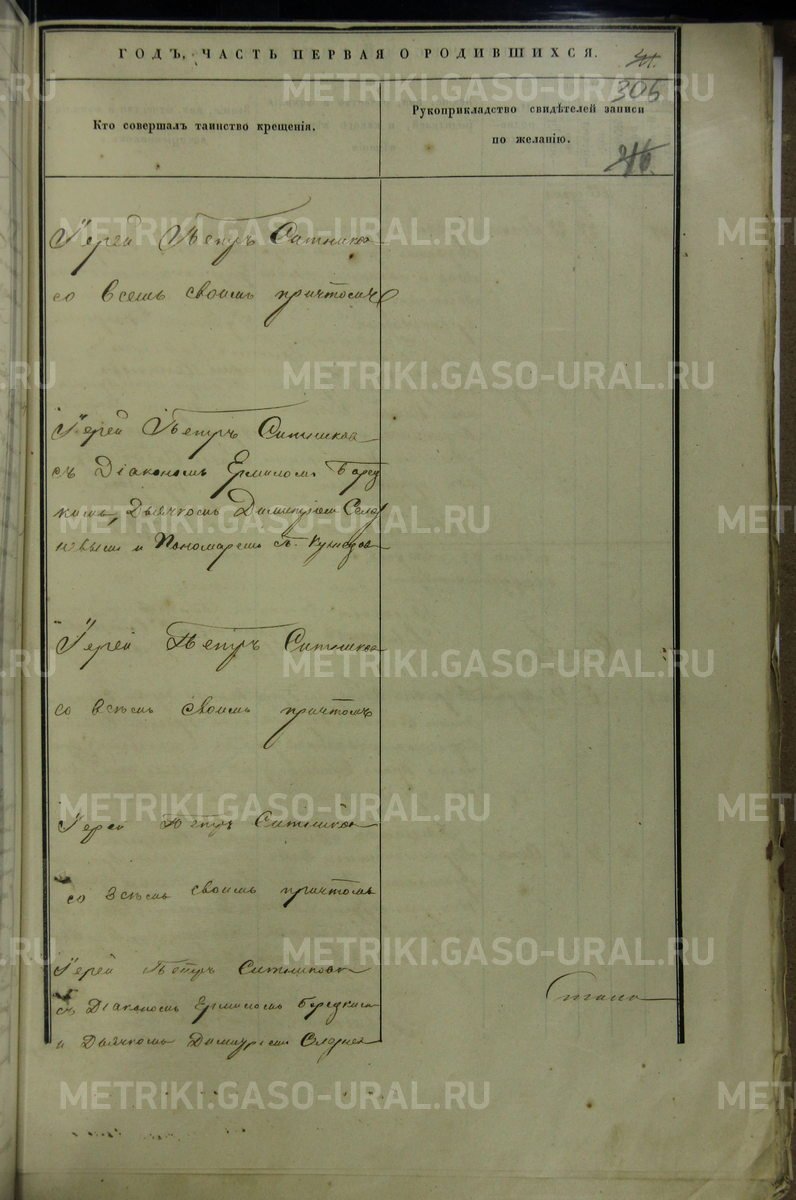 ГОДЪ, ЧАСТЬ ПЕРВАЯ О РОДИВШИХСЯ.
305
Кто совершалъ таинство крещенія.
Рукоприкладство свидѣтелей записи
по желанію.
Іерей Петръ Ситников
со всемъ своимъ причтомъ
Іерей Петръ Ситников
съ Діакономъ Ермиломъ
Дьячкомъ Димитріем
и Пономарем
Іерей Петръ Ситников
со всѣмъ своимъ причтомъ
Іерей Петръ Ситников
со всѣмъ своимъ причтомъ
Іерей Петръ Ситников
съ Діакономъ Ермиломъ
и Дьячкомъ Димитріем
METRIKI.GASO-URAL.RU